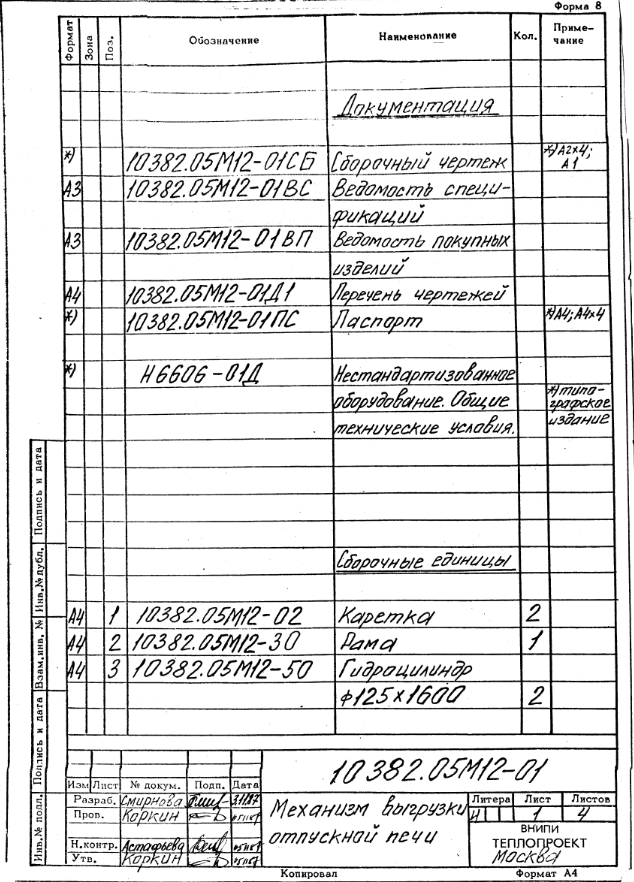 Форма 8
Формат Зона Поз. Обозначение Наименование Кол. Приме-
чание
Документация
*) 10382.05М12-01СБ Сборочный чертеж *)А2х4;
А1
А3 10382.05М12-01ВС Ведомость специ-
фикаций
А3 10382.05М12-01ВП Ведомость покупных
изделий
А4 10382.05М12-01Д1 Перечень чертежей
*) 10382.05М12-01ПС Паспорт *)А4; А4х4
*) Н6606-01Д Нестандартизованное
оборудование. Общие *)типо-
графское
технические условия. издание
Сборочные единицы
А4 1 10382.05М12-02 Каретка 2
А4 2 10382.05М12-30 Рама 1
А4 3 10382.05М12-50 Гидроцилиндр
ф125х1600 2
Инв.№ подл. Подпись и дата Взам.инв. № Инв.№ дубл. Подпись и дата
10382.05М12-01
Изм Лист № докум. Подп. Дата
Разраб. Смирнова
Пров. Коркин
Н.контр. Астафьева
Утв. Коркин
Механизм выгрузки
отпускной печи
Литера Лист Листов
И 1 4
ВНИПИ
ТЕПЛОПРОЕКТ
Москва
Копировал Формат А4